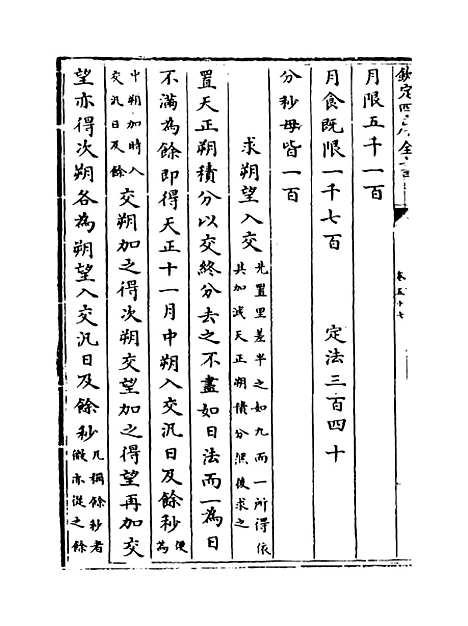 欽定四庫全書
卷五十七
月限五千一百
月食既限一千七百　定法三百四十
分秒母皆一百
求朔望入交先置里差半之如九而一所得依其加減天正朔積分然後求之
置天正朔積分以交終分去之不盡如日法而一為日
不滿為餘即得天正十一月中朔入交汎日及餘秒便為
中朔加時入交汎日及餘交朔加之得次朔交望加之得望再加交
望亦得次朔各為朔望入交汎日及餘秒凡稱餘秒者微亦從之餘